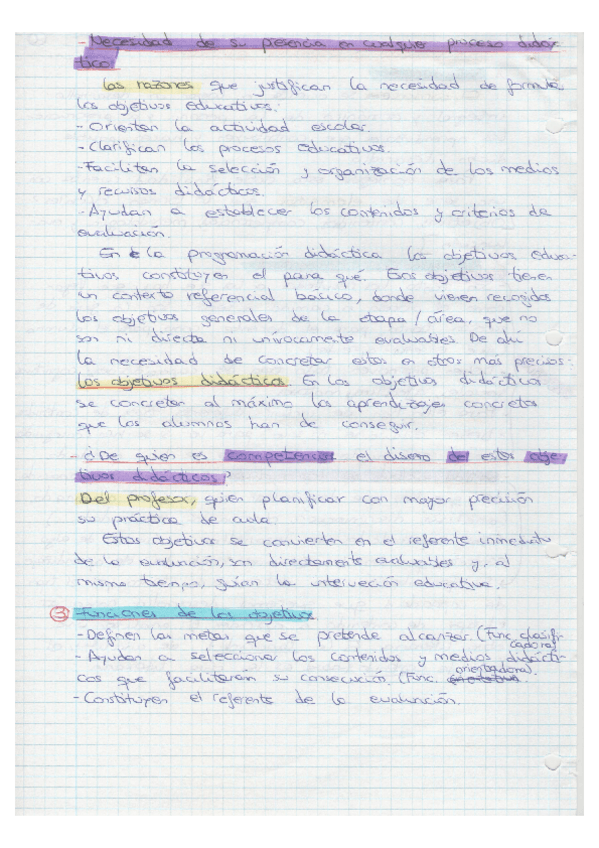 - Necesidad de su presencia en cualquier proceso didác-
tico.
Las razones que justifican la necesidad de formular
los objetivos educativos:
- Orientan la actividad escolar.
- Clarifican los procesos educativos.
- Facilitan la selección y organización de los medios
y recursos didácticos.
- Ayudan a establecer los contenidos y criterios de
evaluación.
En la programación didáctica los objetivos educa-
tivos constituyen el para qué. Esos objetivos tienen
un contexto referencial básico, donde vienen recogidos
los objetivos generales de la etapa / área, que no
son ni directa ni unívocamente evaluables. De ahí
la necesidad de concretar estos a otros más precisos:
los objetivos didácticos. En los objetivos didácticos
se concretan al máximo los aprendizajes concretos
que los alumnos han de conseguir.
- ¿De quien es competencia el diseño de estos obje-
tivos didácticos?
Del profesor, quien planificar con mayor precisión
su práctica de aula
Estos objetivos se convierten en el referente inmediato
de la evaluación, son directamente evaluables y, al
mismo tiempo, guían la interveción educativa.
③ Funciones de los objetivos
- Definen las metas que se pretende alcanzar. (Func. clasifi-
cadora)
- Ayudan a seleccionar los contenidos y medios didácti-
cos que facilitaran su consecución. (Func. orientadora).
- Constituyen el referente de la evaluación.